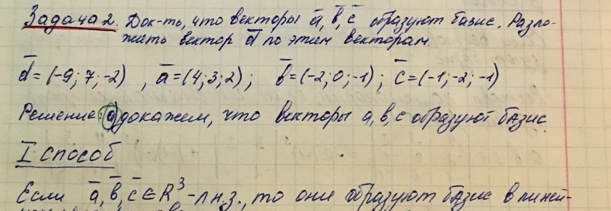 Задача 2. Док-ть, что векторы a̅, b̅, c̅ образуют базис. Разло-
жать вектор d̅ по этим векторам.
d̅ = (-9; 7; -2) , a̅ = (4; 3; 2) ; b̅ = (-2; 0; -1) ; c̅ = (-1; -2; -1)
Решение: а) докажем, что векторы a, b, c образуют базис
I способ
Если a̅, b̅, c̅ ∈ R³ - лнз., то они образуют базис в линей-